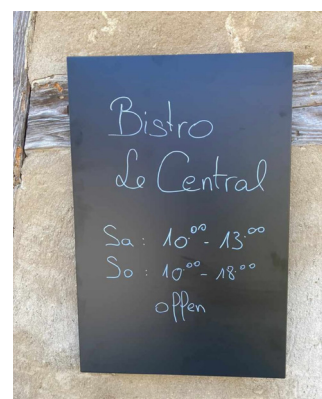 Bistro
Le Central
Sa : 10.00 - 13.00
So : 10.00 - 18.00
offen